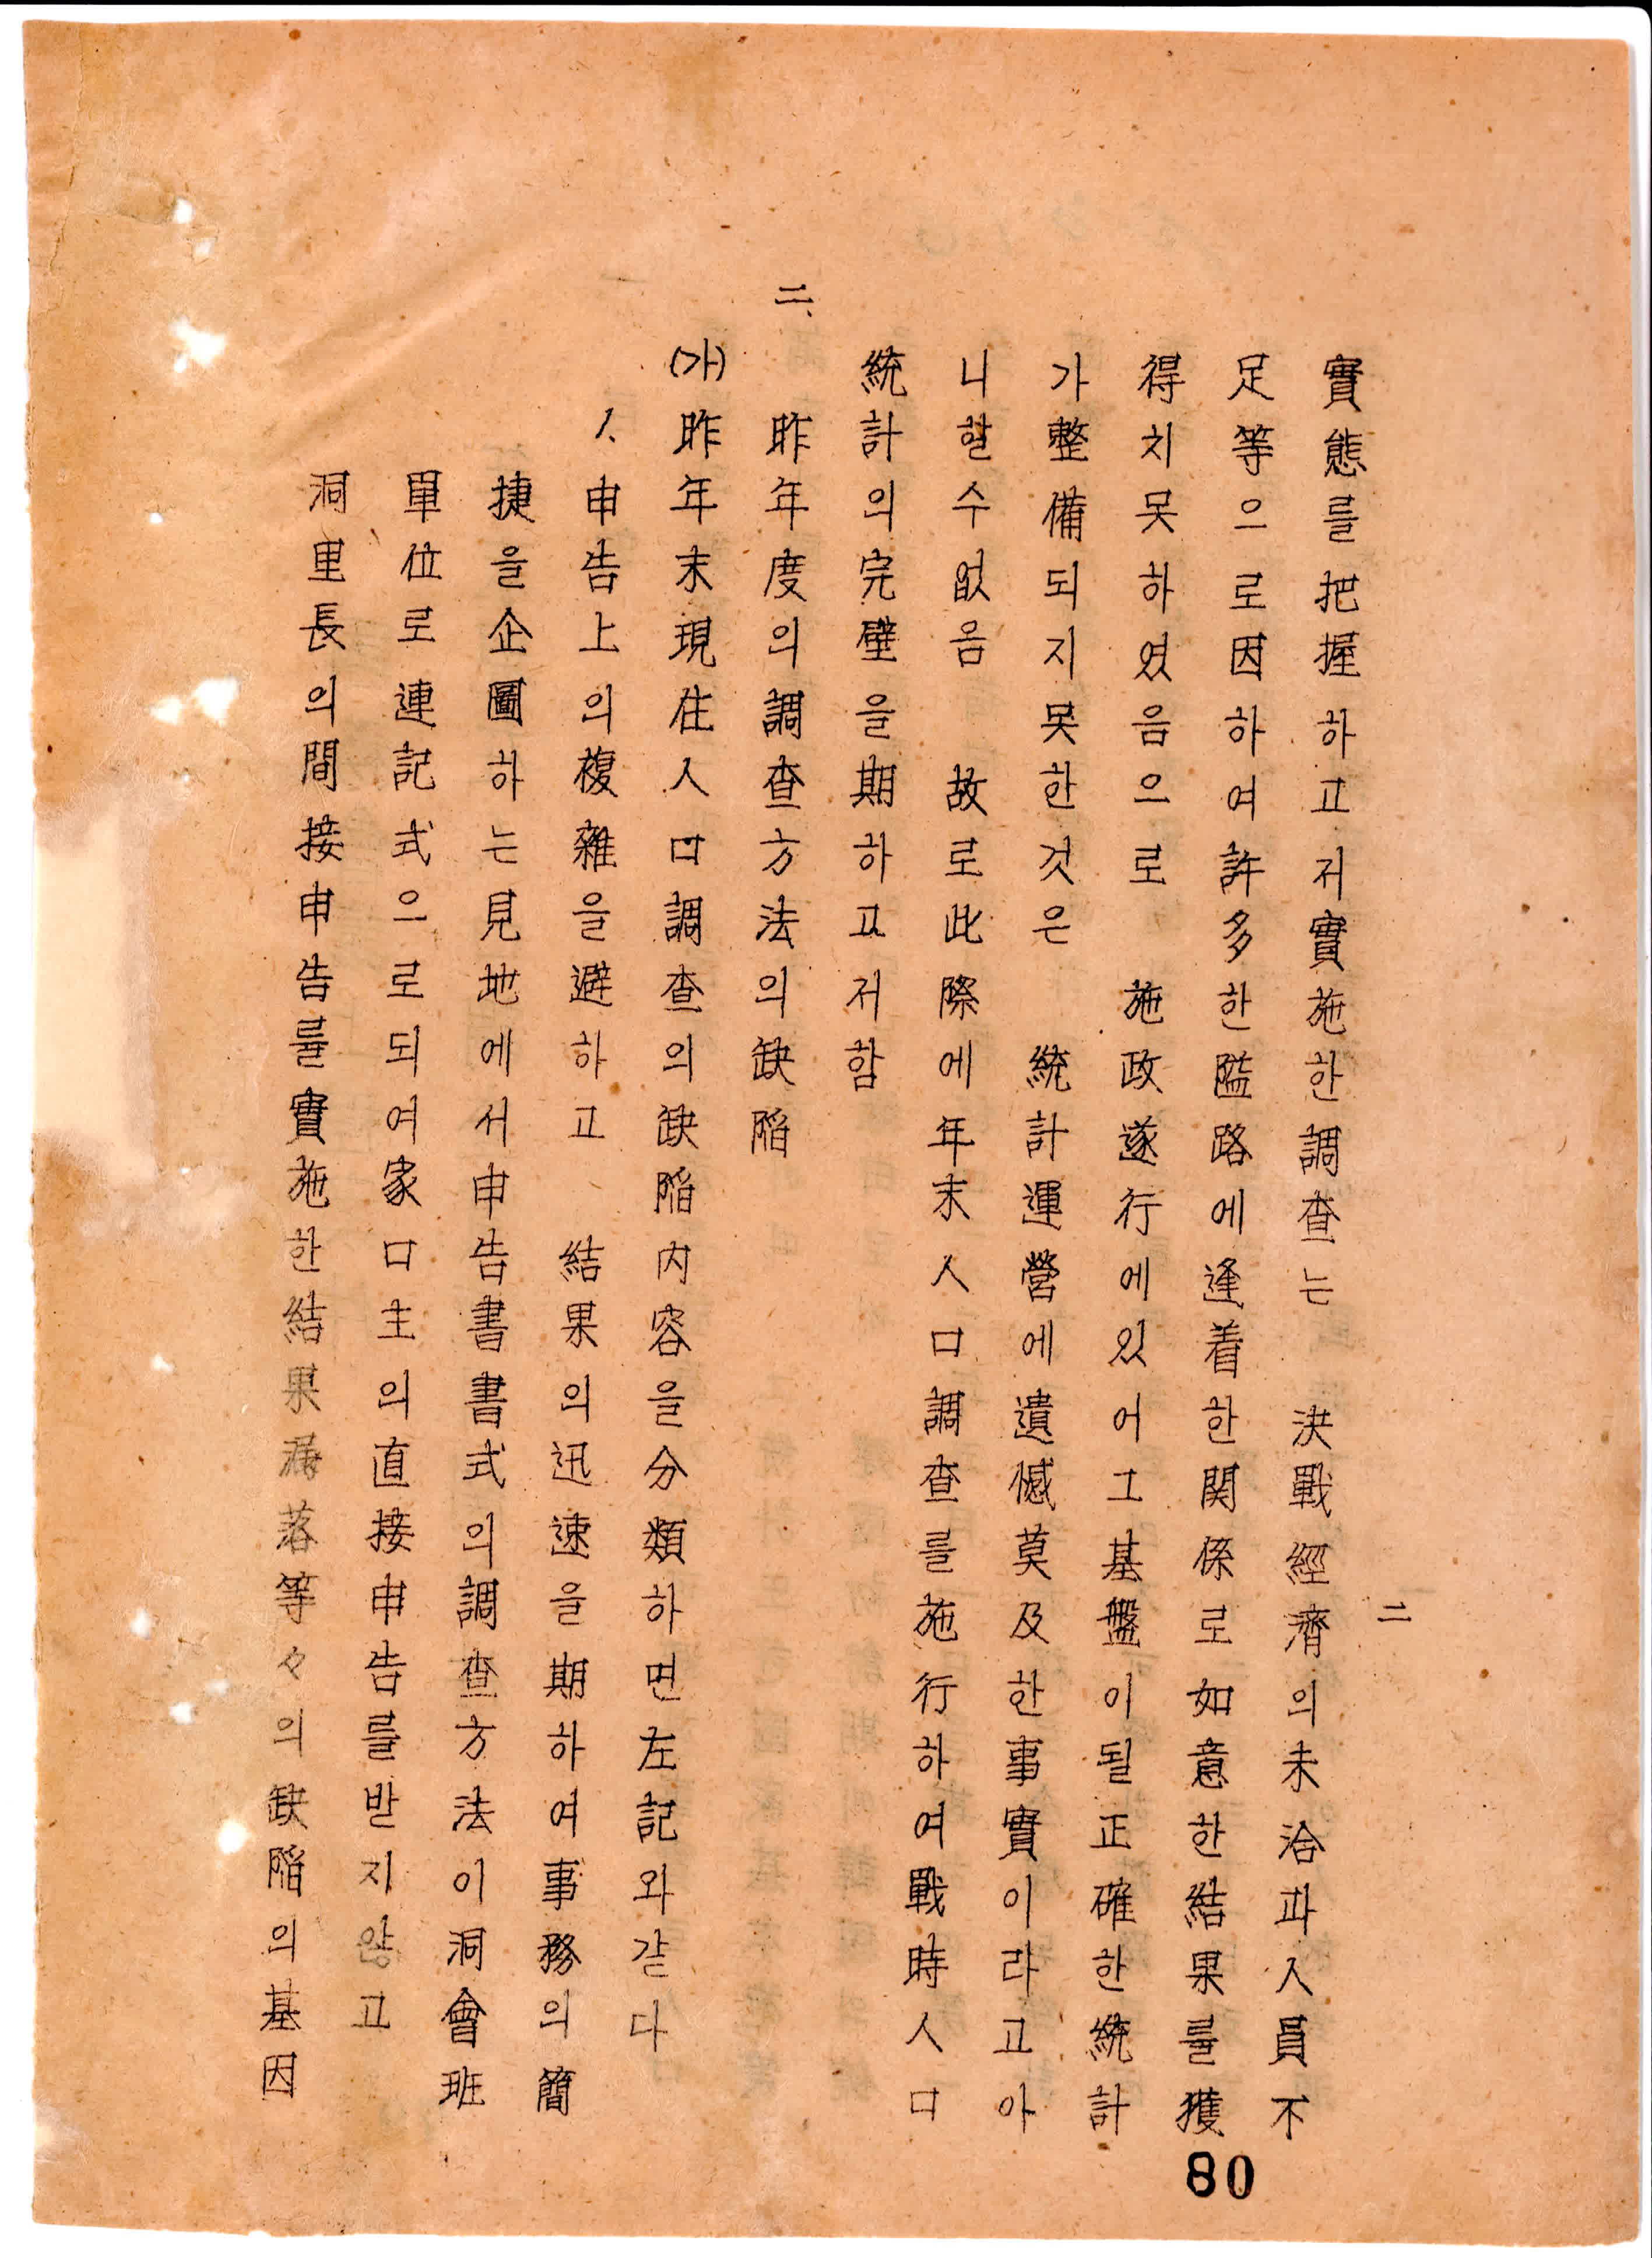 二
實態를把握하고저實施한調査는 決戰經濟의未洽과人員不
足等으로因하여許多한隘路에逢着한関係로如意한結果를獲
得치못하였음으로 施政遂行에있어그基盤이될正確한統計
가整備되지못한것은 統計運營에遺憾莫及한事實이라고아
니할수없음 故로此際에年末人口調査를施行하여戰時人口
統計의完壁을期하고저함
二、昨年度의調査方法의缺陷
(가)昨年末現住人口調査의缺陷内容을分類하면左記와같다
1、申告上의複雜을避하고 結果의迅速을期하여事務의簡
捷을企圖하는見地에서申告書書式의調査方法이洞會班
單位로連記式으로되여家口主의直接申告를받지않고
洞里長의間接申告를實施한結果漏落等々의缺陷의基因
80